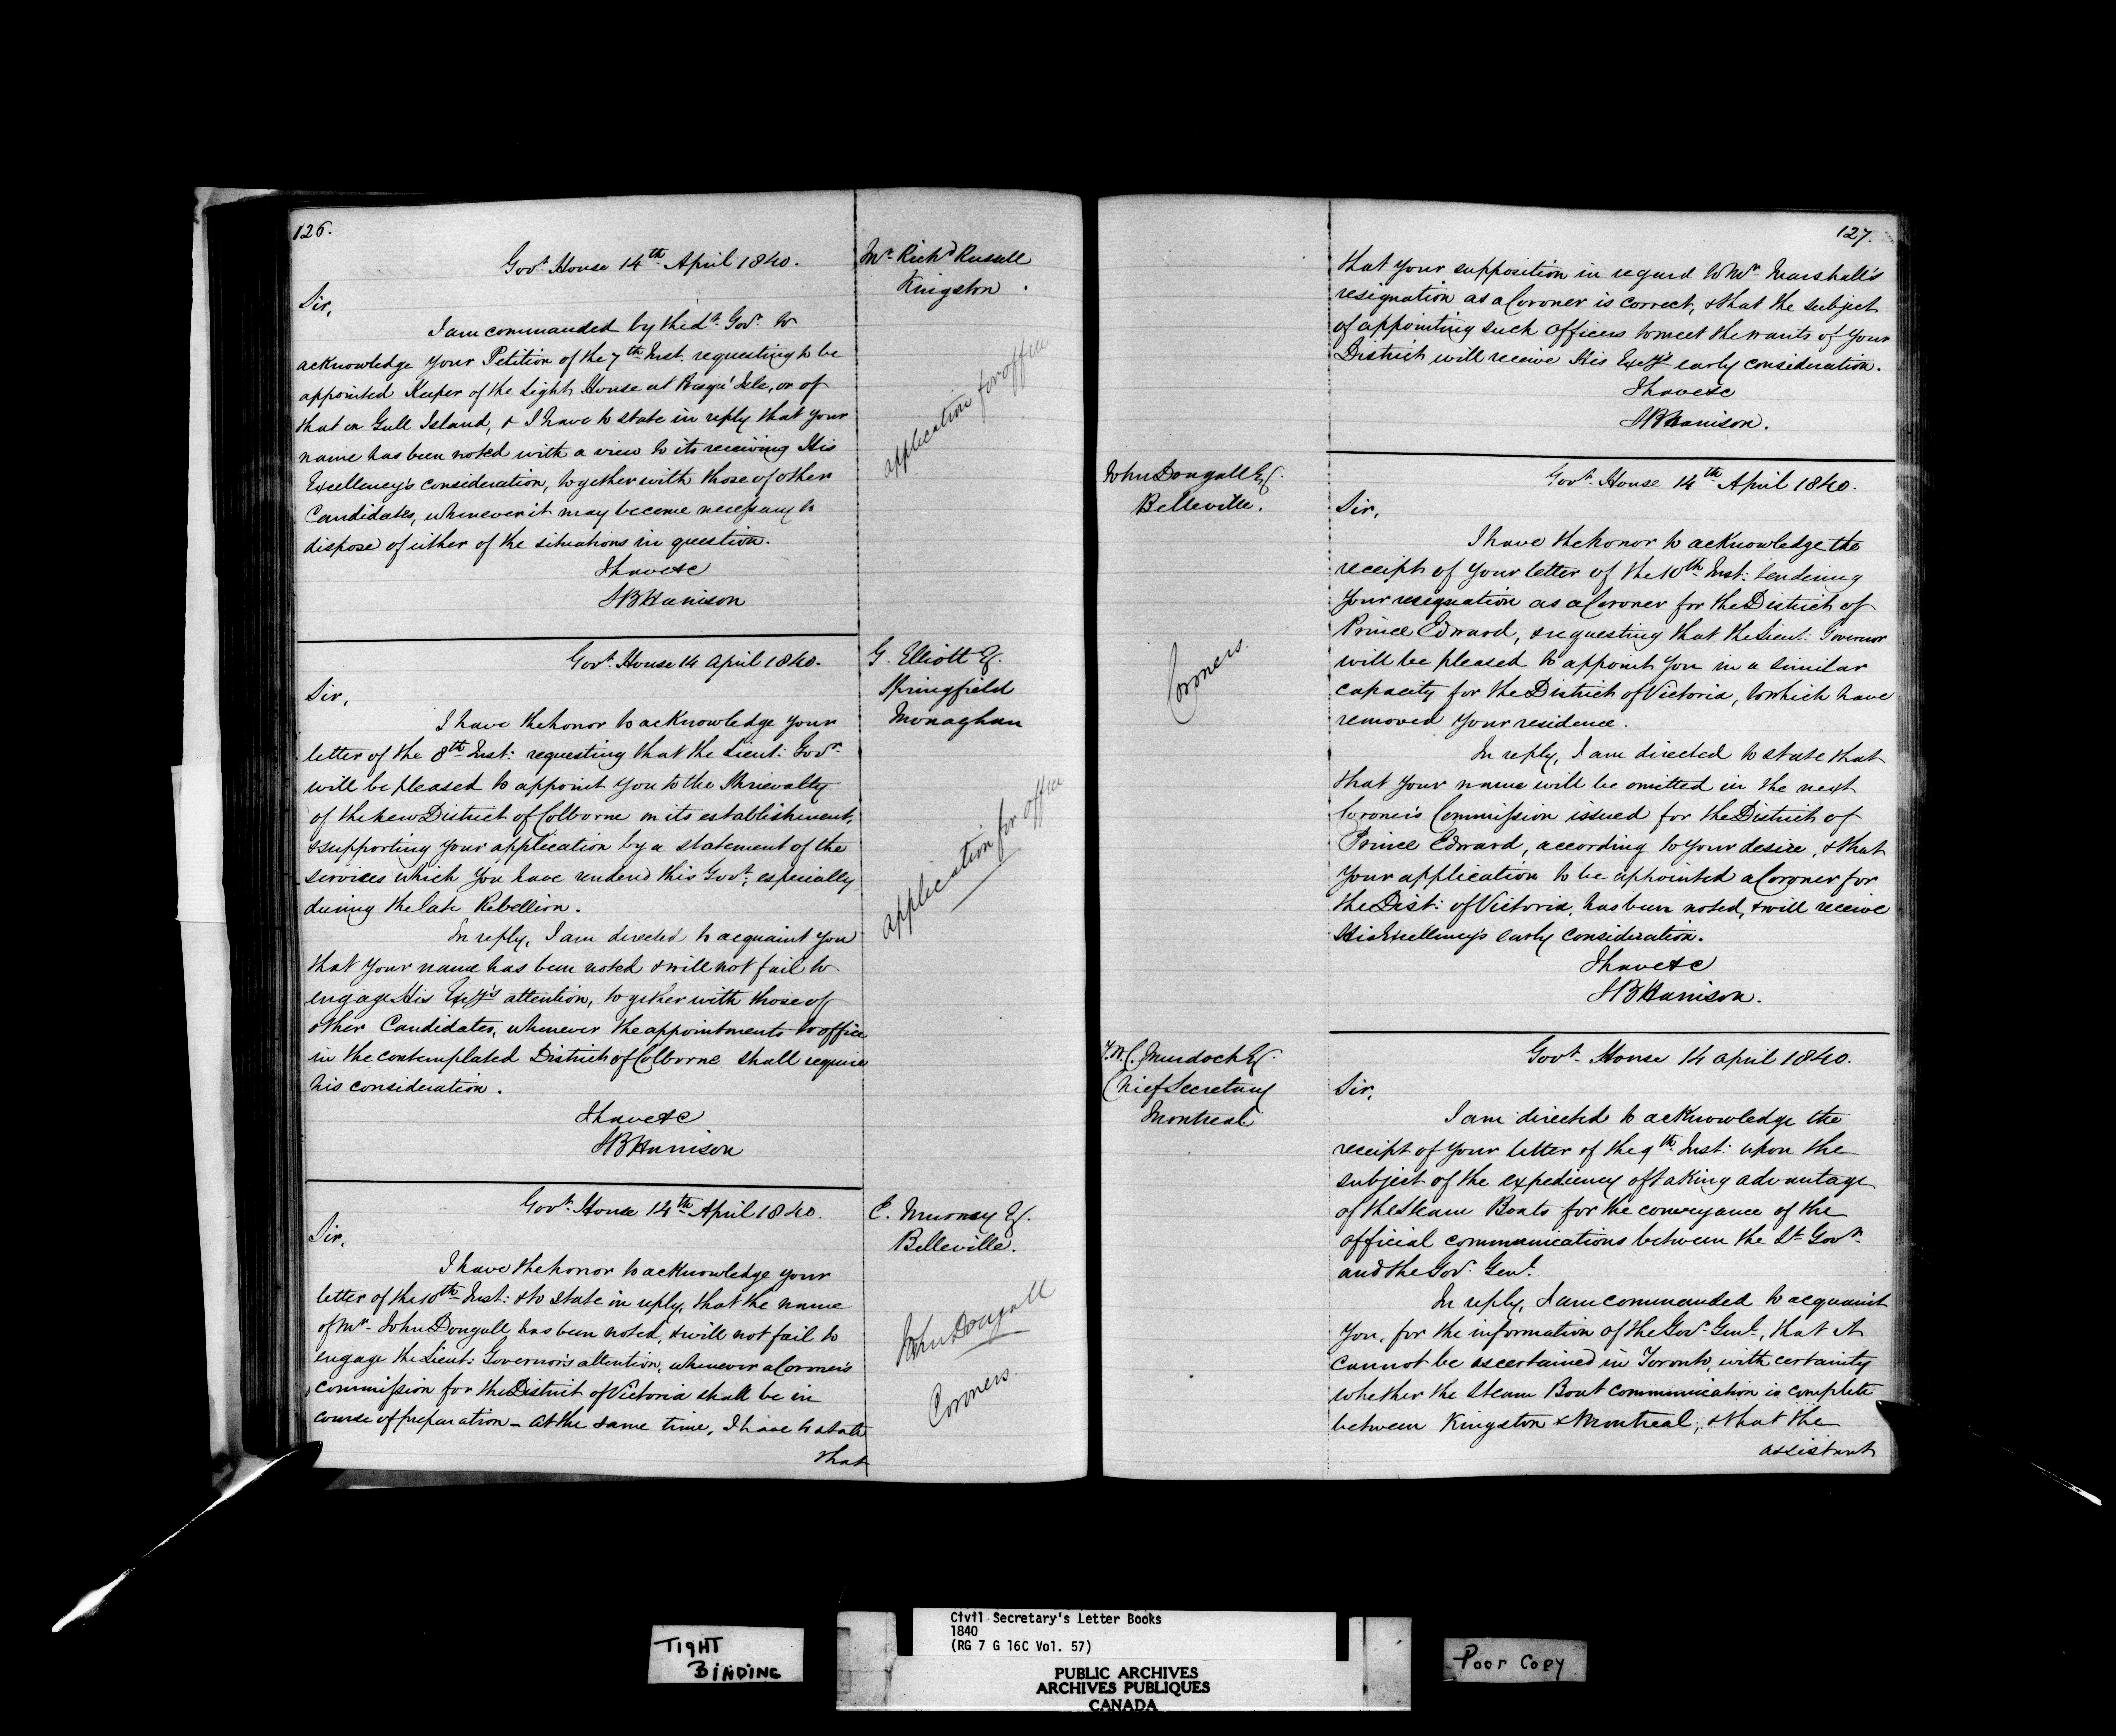 126.
Mr. Richd Russell
Kingston.
Govt. House 14th April 1840.
Sir,
I am commanded by the Lt. Govr. to
acknowledge your Petition of the 7th Inst. requesting to be
appointed Keeper of the Light House at Presqu' Isle, or of
that on Gull Island, & I have to state in reply that your
name has been noted with a view to its receiving His
Excellency's consideration, together with those of other
Candidates, whenever it may become necessary to
dispose of either of the situations in question.
I have &c
SB Harrison
application for office
G. Elliott Esq.
Springfield
Monaghan
Govt. House 14 April 1840.
Sir,
I have the honor to acknowledge your
letter of the 8th Inst: requesting that the Lieut: Govr.
will be pleased to appoint you to the Shrievalty
of the new District of Colborne on its establishment,
& supporting your application by a statement of the
services which you have rendered this Govt; especially
during the late Rebellion.
In reply, I am directed to acquaint you
that your name has been noted & will not fail to
engage His Excy's attention, together with those of
other Candidates, whenever the appointments to office
in the contemplated District of Colborne shall require
his consideration.
I have &c
SB Harrison
application for office
E. Murney Esq.
Belleville.
Govt. House 14th April 1840.
Sir,
I have the honor to acknowledge your
letter of the 10th Inst: & to state in reply, that the name
of Mr. John Dougall has been noted, & will not fail to
engage the Lieut: Governor's attention, whenever a Coroner's
Commission for the District of Victoria shall be in
course of preparation - At the same time, I have to state
that
John Dougall
Coroners.
127.
that your supposition in regard to Mr. Marshall's
resignation as a Coroner is correct, & that the subject
of appointing such Officers to meet the wants of your
District will receive His Excy's early consideration.
I have &c
SB Harrison.
John Dougall Esq.
Belleville.
Govt. House 14th April 1840.
Sir,
I have the honor to acknowledge the
receipt of your letter of the 10th Inst: tendering
your resignation as a Coroner for the District of
Prince Edward, & requesting that the Lieut: Governor
will be pleased to appoint you in a similar
capacity for the District of Victoria, to which have
removed your residence.
In reply, I am directed to state that
that your name will be omitted in the next
Coroner's Commission issued for the District of
Prince Edward, according to your desire, & that
your application to be appointed a Coroner for
the Dist: of Victoria, has been noted, & will receive
His Excellency's early consideration.
I have &c
SB Harrison.
Coroners.
T.W.C. Murdoch Esq.
Chief Secretary
Montreal
Govt. House 14 April 1840.
Sir,
I am directed to acknowledge the
receipt of your letter of the 9th Inst: upon the
subject of the expediency of taking advantage
of the Steam Boats for the conveyance of the
official communications between the Lt Govr.
and the Gov. Genl.
In reply, I am commanded to acquaint
you, for the information of the Gov. Genl., that it
cannot be ascertained in Toronto, with certainty
whether the Steam Boat communication is complete
between Kingston & Montreal; & that the
assistant
TIGHT
BINDING
Civil Secretary's Letter Books
1840
(RG 7 G 16C Vol. 57)
PUBLIC ARCHIVES
ARCHIVES PUBLIQUES
CANADA
Poor Copy